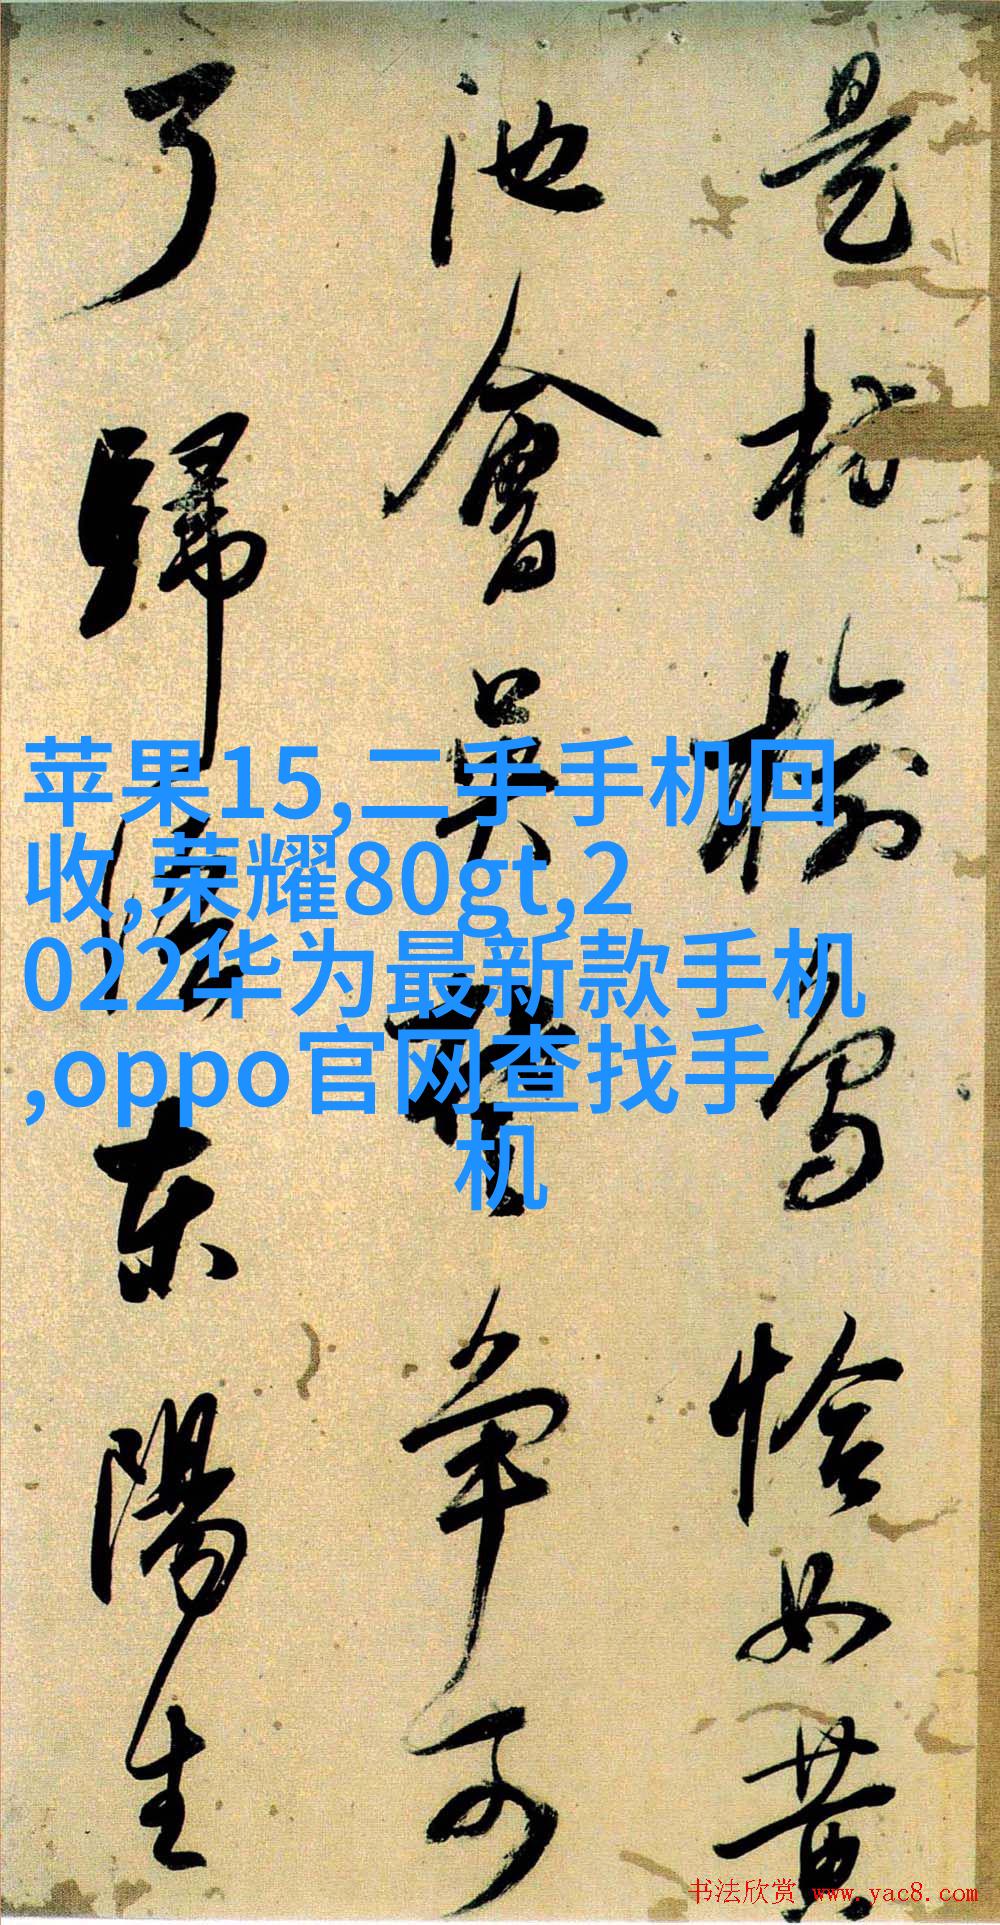 苹果15,二手手机回
收,荣耀80gt,2
022华为最新款手机
,oppo官网查找手
机
是枋榆恰如黄
池會吴争可
了歸東陽生
书法欣赏 www.yac8.com